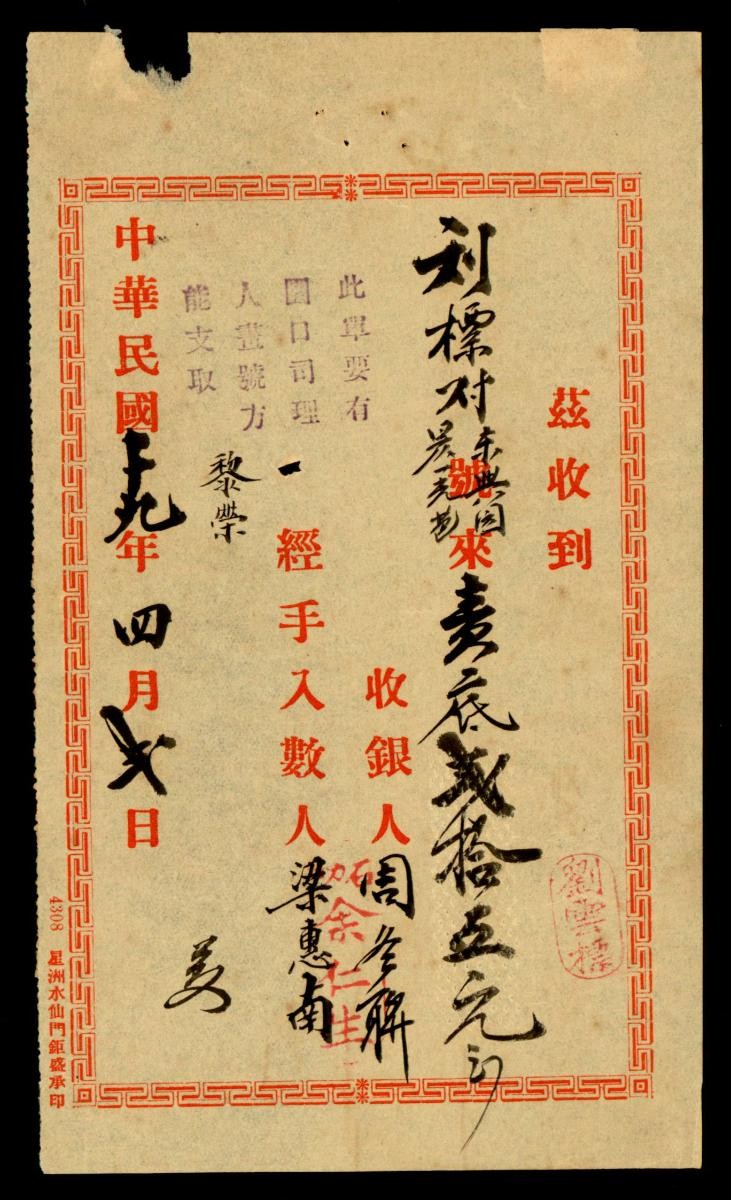 茲收到
利標対號來責底貳拾五元
東興園
收銀人 周冬聯
經手入數人 梁惠南
黎榮
此單要有
園口司理
人畫號方
能支取
中華民國十九年四月貳日
劉雲標
余仁生
4308 星洲水仙門鉅盛承印